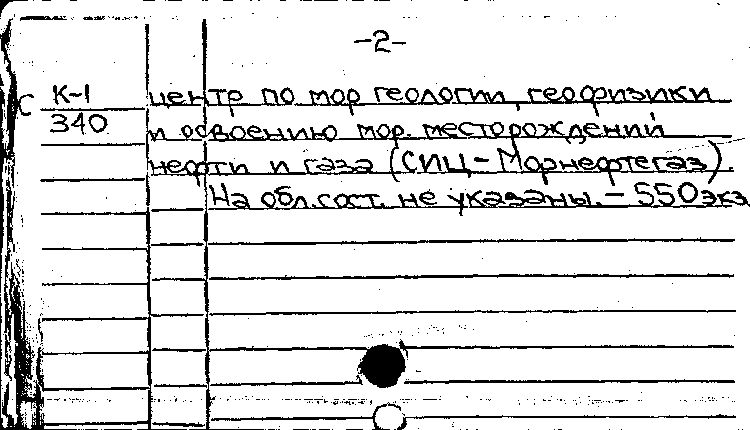 -2-
С К-1 центр по мор геологии, геофизики
340 и освоению мор. месторождений
нефти и газа (СИЦ-Морнефтегаз).
На обл. сост. не указаны. - 550 экз